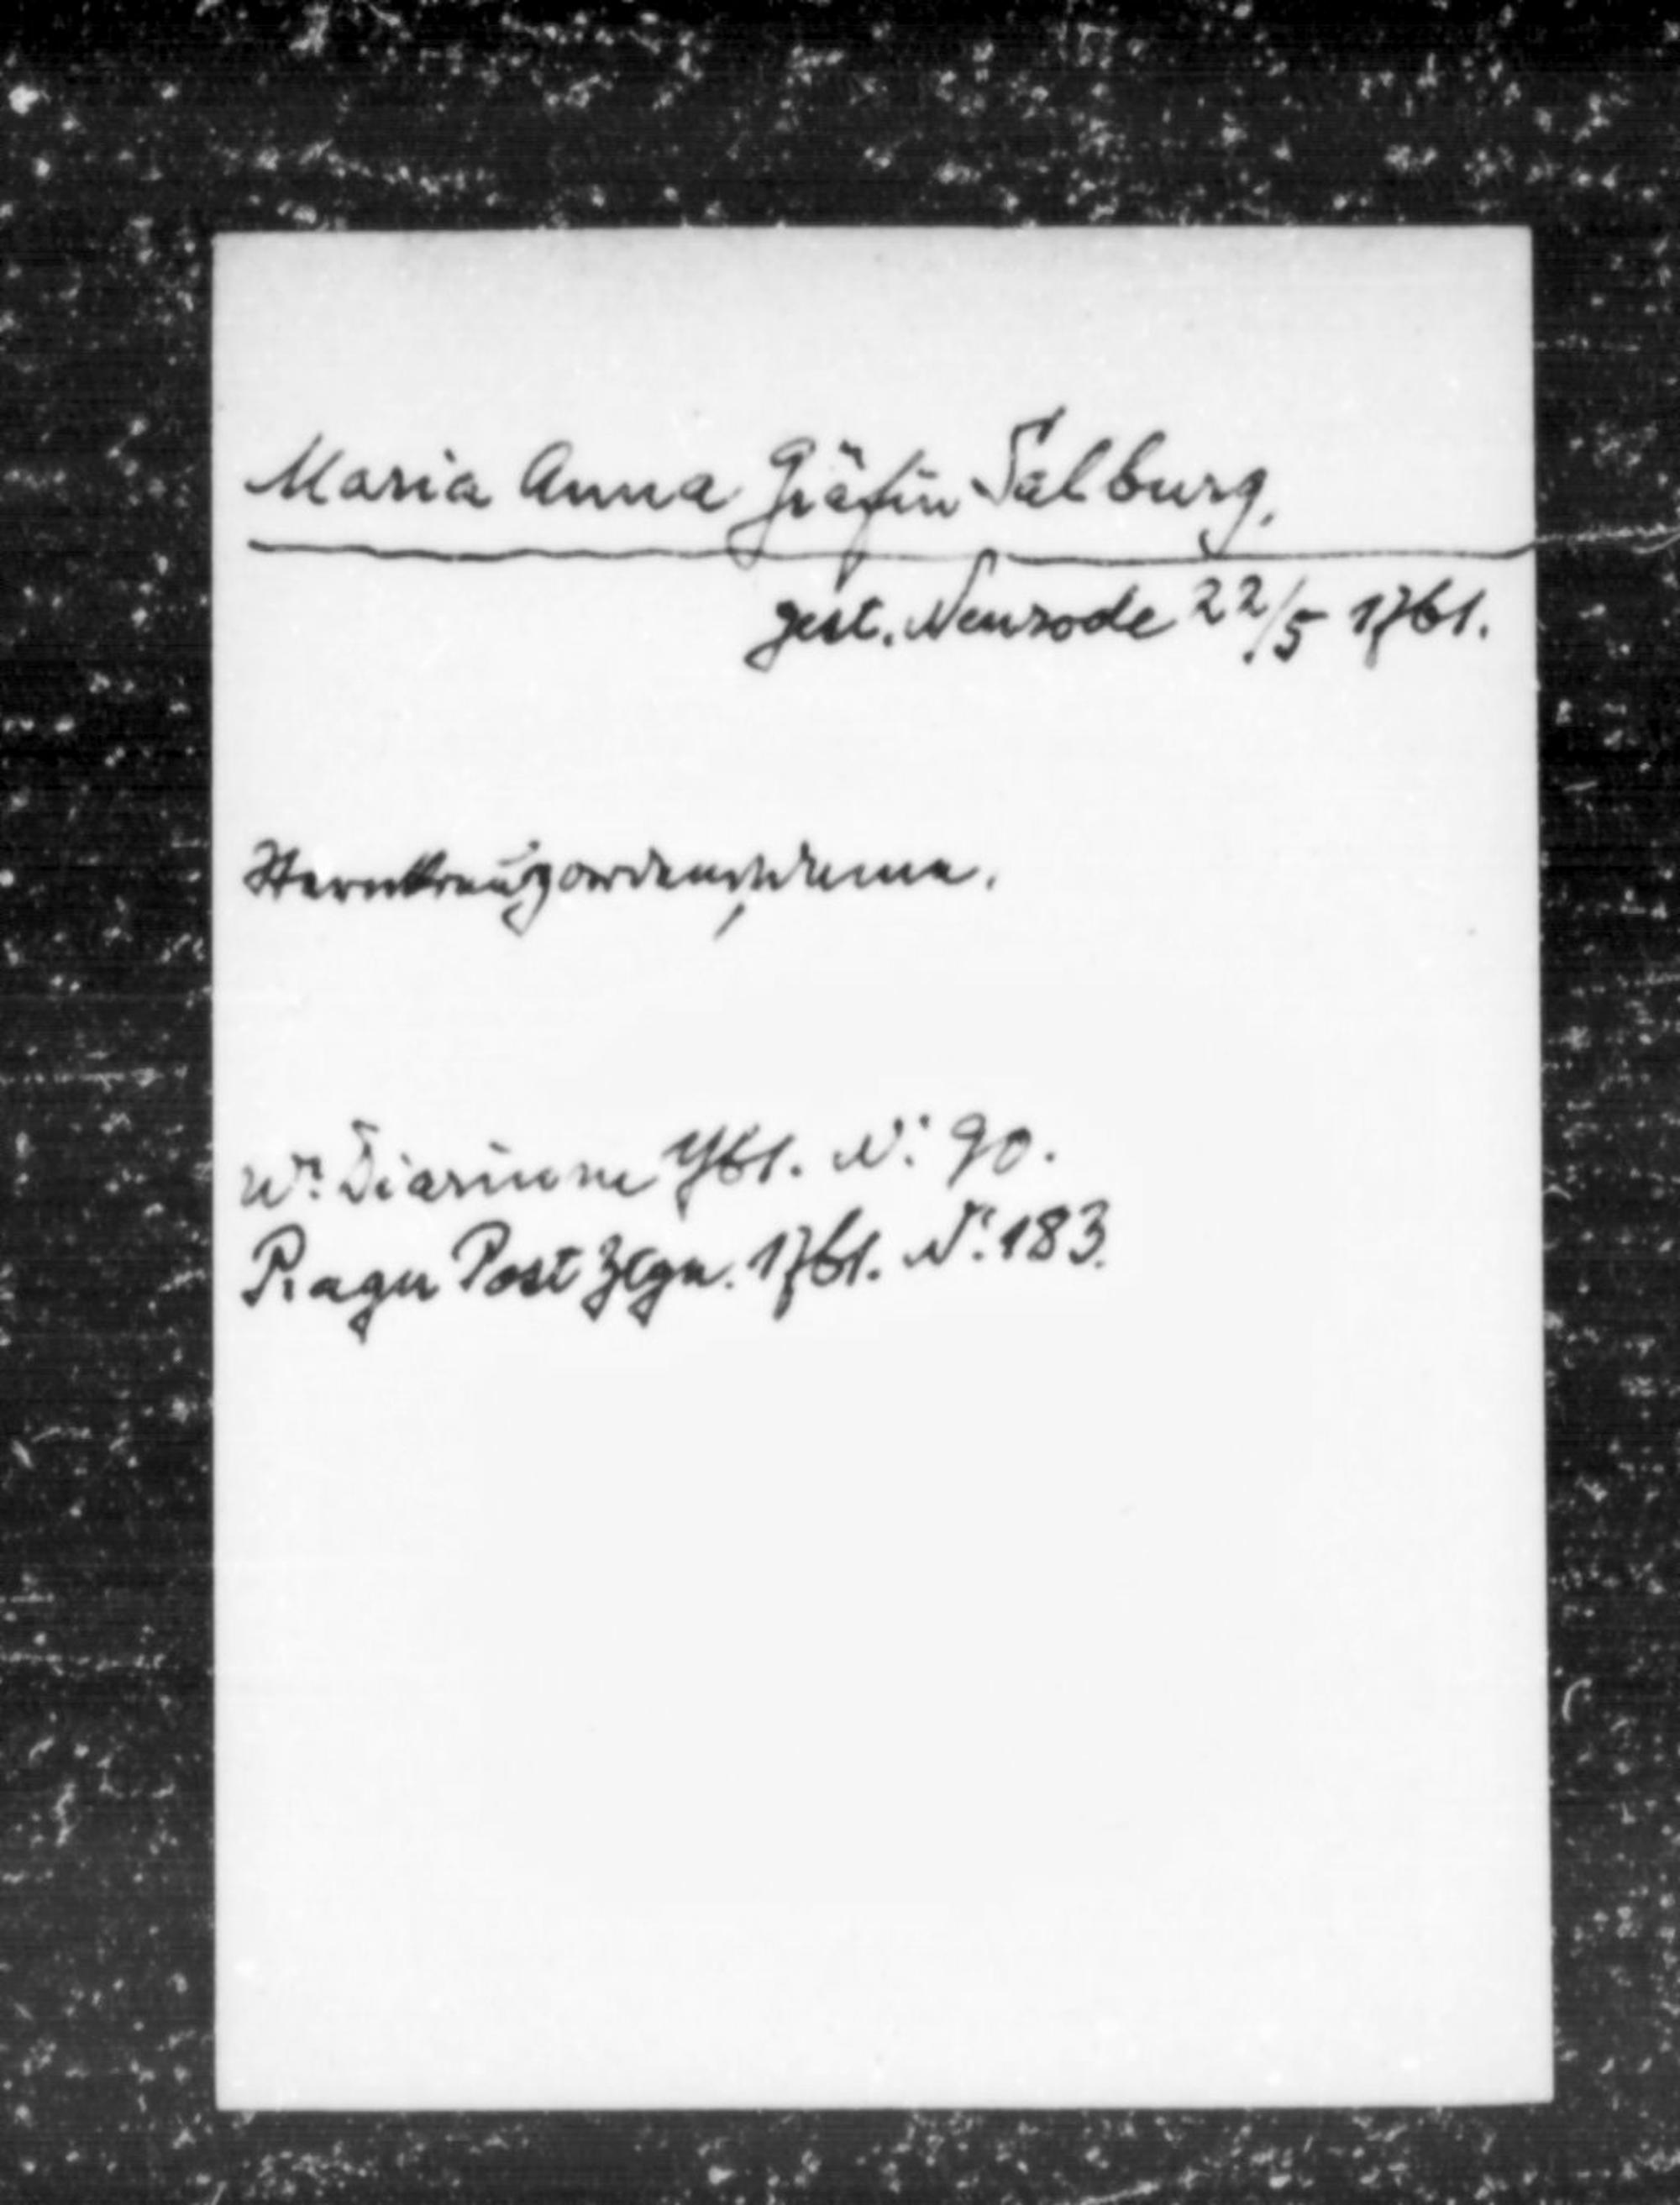 Maria Anna Gräfin Salburg,
gest. Neurode 22/5 1761.
Sternkreuzordensdame.
Wr. Diarium 1761. N: 90.
Prager Post Ztgn. 1761. N: 183.